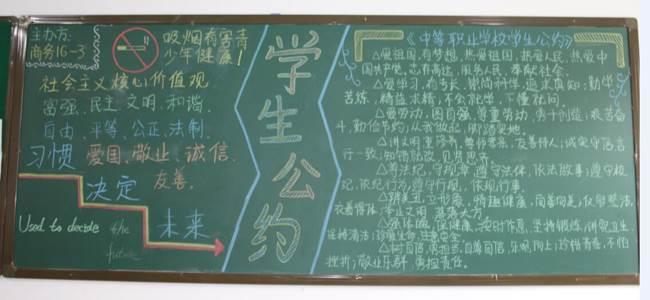 主办方:
商务16-3
吸烟有害青
少年健康!
社会主义核心价值观
富强、民主、文明、和谐、
自由、平等、公正、法制、
爱国、敬业、诚信、
友善。
习惯
决定
未来
Used to decide the
future
学生公约
《中等职业学校学生公约》
△爱祖国,有梦想,热爱祖国,热爱人民,热爱中
国共产党,志存高远,服务人民,奉献社会。
△爱学习,有专长,崇尚科学,追求真知;勤学
苦练,精益求精,不会就学,不懂就问。
△爱劳动,图自强,尊重劳动,勇于创造;艰苦奋
斗,勤俭节约;从我做起,脚踏实地。
△讲文明,重修养,尊师孝亲,友善待人;诚实守信,言
行一致;知错就改,见贤思齐。
△遵法纪,守规章,遵守法律,依法做事;遵守校
纪,依纪行为;遵守行规,依规行事。
△辨美丑,立形象,情趣健康,向善向美;仪容整洁,
衣着得体;举止文明,落落大方。
△强体魄,保健康,按时作息,坚持锻炼;讲究卫生,
保持清洁;珍爱生命,注意安全。
△树自信,勇担当,自尊自信,乐观向上;珍惜青春,不怕
挫折;敬业乐群,勇担责任。